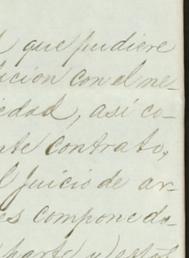 que pudiere
ición con el me-
edad, así co-
nte contrato,
l juicio de ar-
es componedo-
parte y estos